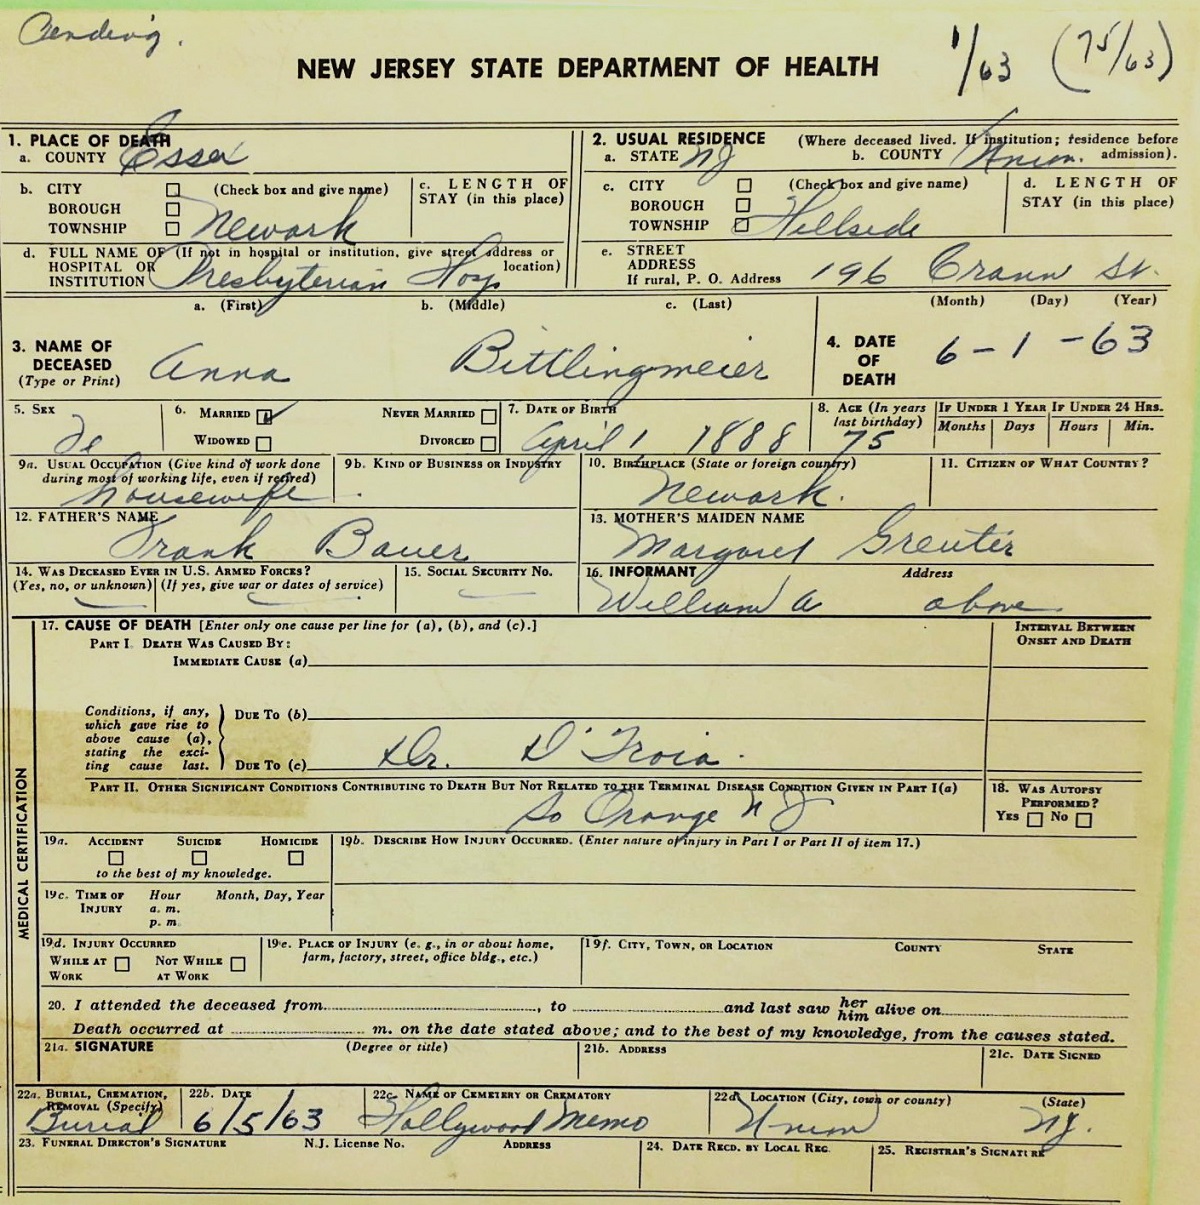 Pending.
1/63 (75/63)
NEW JERSEY STATE DEPARTMENT OF HEALTH
1. PLACE OF DEATH
a. COUNTY Essex
2. USUAL RESIDENCE (Where deceased lived. If institution; residence before admission).
a. STATE NJ b. COUNTY Union.
b. CITY (Check box and give name)
BOROUGH
TOWNSHIP Newark
c. LENGTH OF STAY (in this place)
c. CITY (Check box and give name)
BOROUGH
TOWNSHIP Hillside
d. LENGTH OF STAY (in this place)
d. FULL NAME OF (If not in hospital or institution, give street address or location)
HOSPITAL OR
INSTITUTION Presbyterian Hosp
e. STREET
ADDRESS 196 Crann St.
If rural, P. O. Address
a. (First) b. (Middle) c. (Last)
3. NAME OF DECEASED
(Type or Print) Anna Bittlingmeier
4. DATE OF DEATH
(Month) (Day) (Year)
6-1-63
5. SEX
6. MARRIED NEVER MARRIED
WIDOWED DIVORCED
7. DATE OF BIRTH
April 1 1888
8. AGE (In years last birthday)
75
IF UNDER 1 YEAR IF UNDER 24 HRS.
Months Days Hours Min.
9a. USUAL OCCUPATION (Give kind of work done
during most of working life, even if retired)
housewife
9b. KIND OF BUSINESS OR INDUSTRY
10. BIRTHPLACE (State or foreign country)
Newark.
11. CITIZEN OF WHAT COUNTRY?
12. FATHER'S NAME
Frank Bauer
13. MOTHER'S MAIDEN NAME
Margaret Greuter
14. WAS DECEASED EVER IN U.S. ARMED FORCES?
(Yes, no, or unknown) (If yes, give war or dates of service)
15. SOCIAL SECURITY NO.
16. INFORMANT Address
William A above
MEDICAL CERTIFICATION
17. CAUSE OF DEATH [Enter only one cause per line for (a), (b), and (c).]
PART I. DEATH WAS CAUSED BY:
IMMEDIATE CAUSE (a)
INTERVAL BETWEEN
ONSET AND DEATH
Conditions, if any,
which gave rise to
above cause (a),
stating the exci-
ting cause last.
DUE TO (b)
DUE TO (c) Dr. D'Troia.
PART II. OTHER SIGNIFICANT CONDITIONS CONTRIBUTING TO DEATH BUT NOT RELATED TO THE TERMINAL DISEASE CONDITION GIVEN IN PART I(a)
So Orange NJ
18. WAS AUTOPSY
PERFORMED?
YES NO
19a. ACCIDENT SUICIDE HOMICIDE
to the best of my knowledge.
19b. DESCRIBE HOW INJURY OCCURRED. (Enter nature of injury in Part I or Part II of item 17.)
19c. TIME OF INJURY Hour Month, Day, Year
a. m.
p. m.
19d. INJURY OCCURRED
WHILE AT WORK NOT WHILE AT WORK
19e. PLACE OF INJURY (e. g., in or about home,
farm, factory, street, office bldg., etc.)
19f. CITY, TOWN, OR LOCATION COUNTY STATE
20. I attended the deceased from , to and last saw her him alive on
Death occurred at m. on the date stated above; and to the best of my knowledge, from the causes stated.
21a. SIGNATURE (Degree or title)
21b. ADDRESS
21c. DATE SIGNED
22a. BURIAL, CREMATION,
REMOVAL (Specify)
Burial
22b. DATE
6/5/63
22c. NAME OF CEMETERY OR CREMATORY
Hollywood Memo
22d. LOCATION (City, town or county) (State)
Union NJ.
23. FUNERAL DIRECTOR'S SIGNATURE N.J. LICENSE NO. ADDRESS
24. DATE RECD. BY LOCAL REG.
25. REGISTRAR'S SIGNATURE